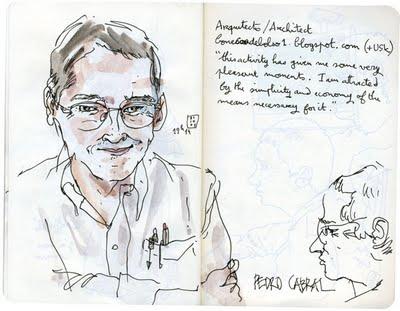 Arquitecto / Architect
bonecosdebolso1.blogspot.com (+USk)
"this activity has given me some very
pleasant moments. I am attracted
by the simplicity and economy of the
means necessary for it."
19h14
PEDRO CABRAL